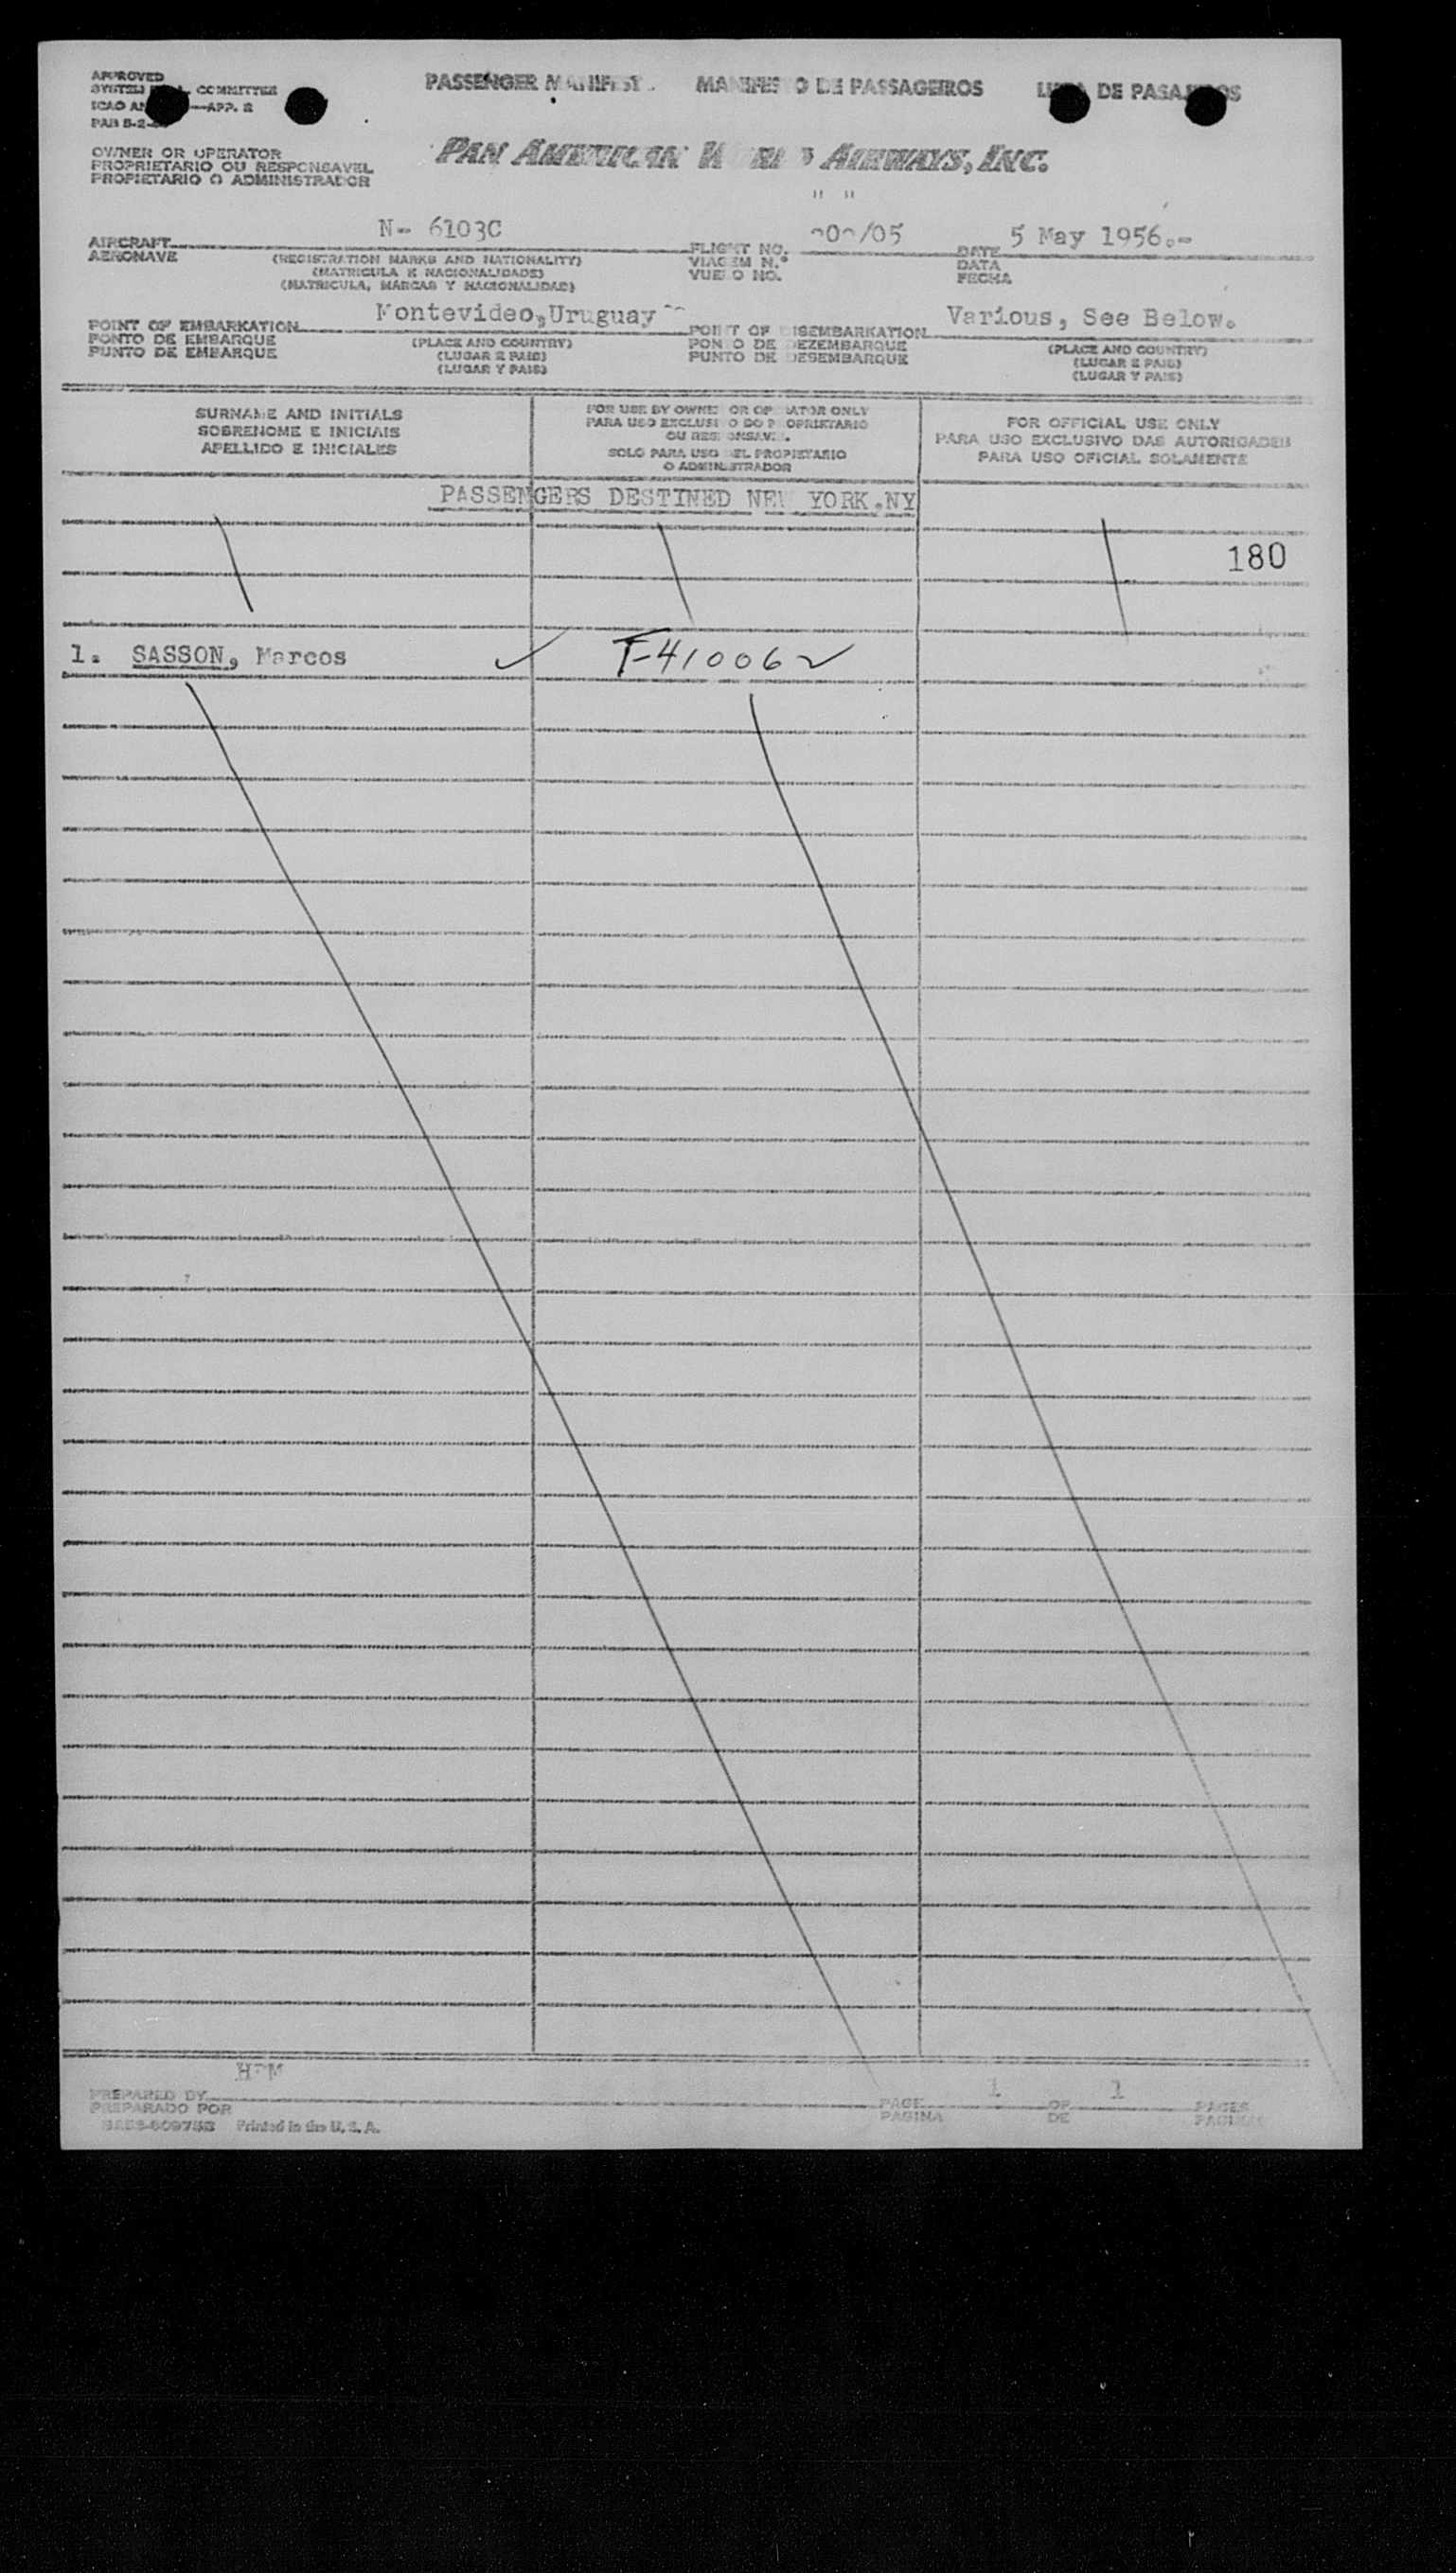 APPROVED
COMMITTEE
ICAO —APP. 2
OWNER OR OPERATOR
PROPRIETARIO OU RESPONSAVEL
PROPIETARIO O ADMINISTRADOR
PASSENGER DE PASSAGEIROS DE
PAN AMERICAN AIRWAYS, INC.
" "
AIRCRAFT N- 6103C FLIGHT NO. /05 DATE 5 May 1956.-
AERONAVE (REGISTRATION MARKS AND NATIONALITY) VIAGEM N.º DATA
(MATRICULA E NACIONALIDADE) VUELO NO. FECHA
(MATRICULA, MARCAS Y NACIONALIDAD)
POINT OF EMBARKATION Montevideo,Uruguay POINT OF DISEMBARKATION Various, See Below.
PONTO DE EMBARQUE (PLACE AND COUNTRY) PONTO DE DEZEMBARQUE (PLACE AND COUNTRY)
PUNTO DE EMBARQUE (LUGAR E PAIS) PUNTO DE DESEMBARQUE (LUGAR E PAIS)
(LUGAR Y PAIS) (LUGAR Y PAIS)
SURNAME AND INITIALS
SOBRENOME E INICIAIS
APELLIDO E INICIALES
FOR USE BY OWNER OR OPERATOR ONLY
PARA USO EXCLUSIVO DO PROPRIETARIO
OU RESPONSAVEL
SOLO PARA USO DEL PROPIETARIO
O ADMINISTRADOR
FOR OFFICIAL USE ONLY
PARA USO EXCLUSIVO DAS AUTORIDADES
PARA USO OFICIAL SOLAMENTE
PASSENGERS DESTINED NEW YORK.NY
180
1. SASSON, Marcos ✓ T-410062
PREPARED BY PAGE 1 OF 1 PAGES
PREPARADO POR PAGINA DE PAGINAS
Printed in the U. S. A.